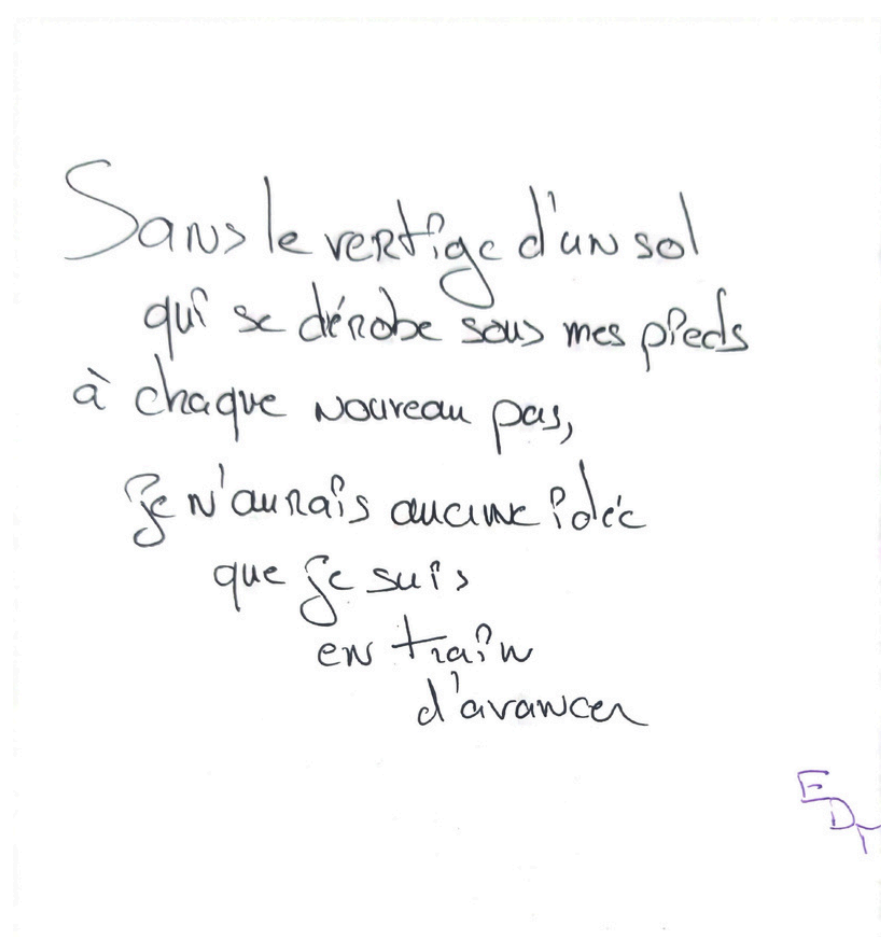 Sans le vertige d'un sol
qui se dérobe sous mes pieds
à chaque nouveau pas,
je n'aurais aucune idée
que je suis
en train
d'avancer
EDT